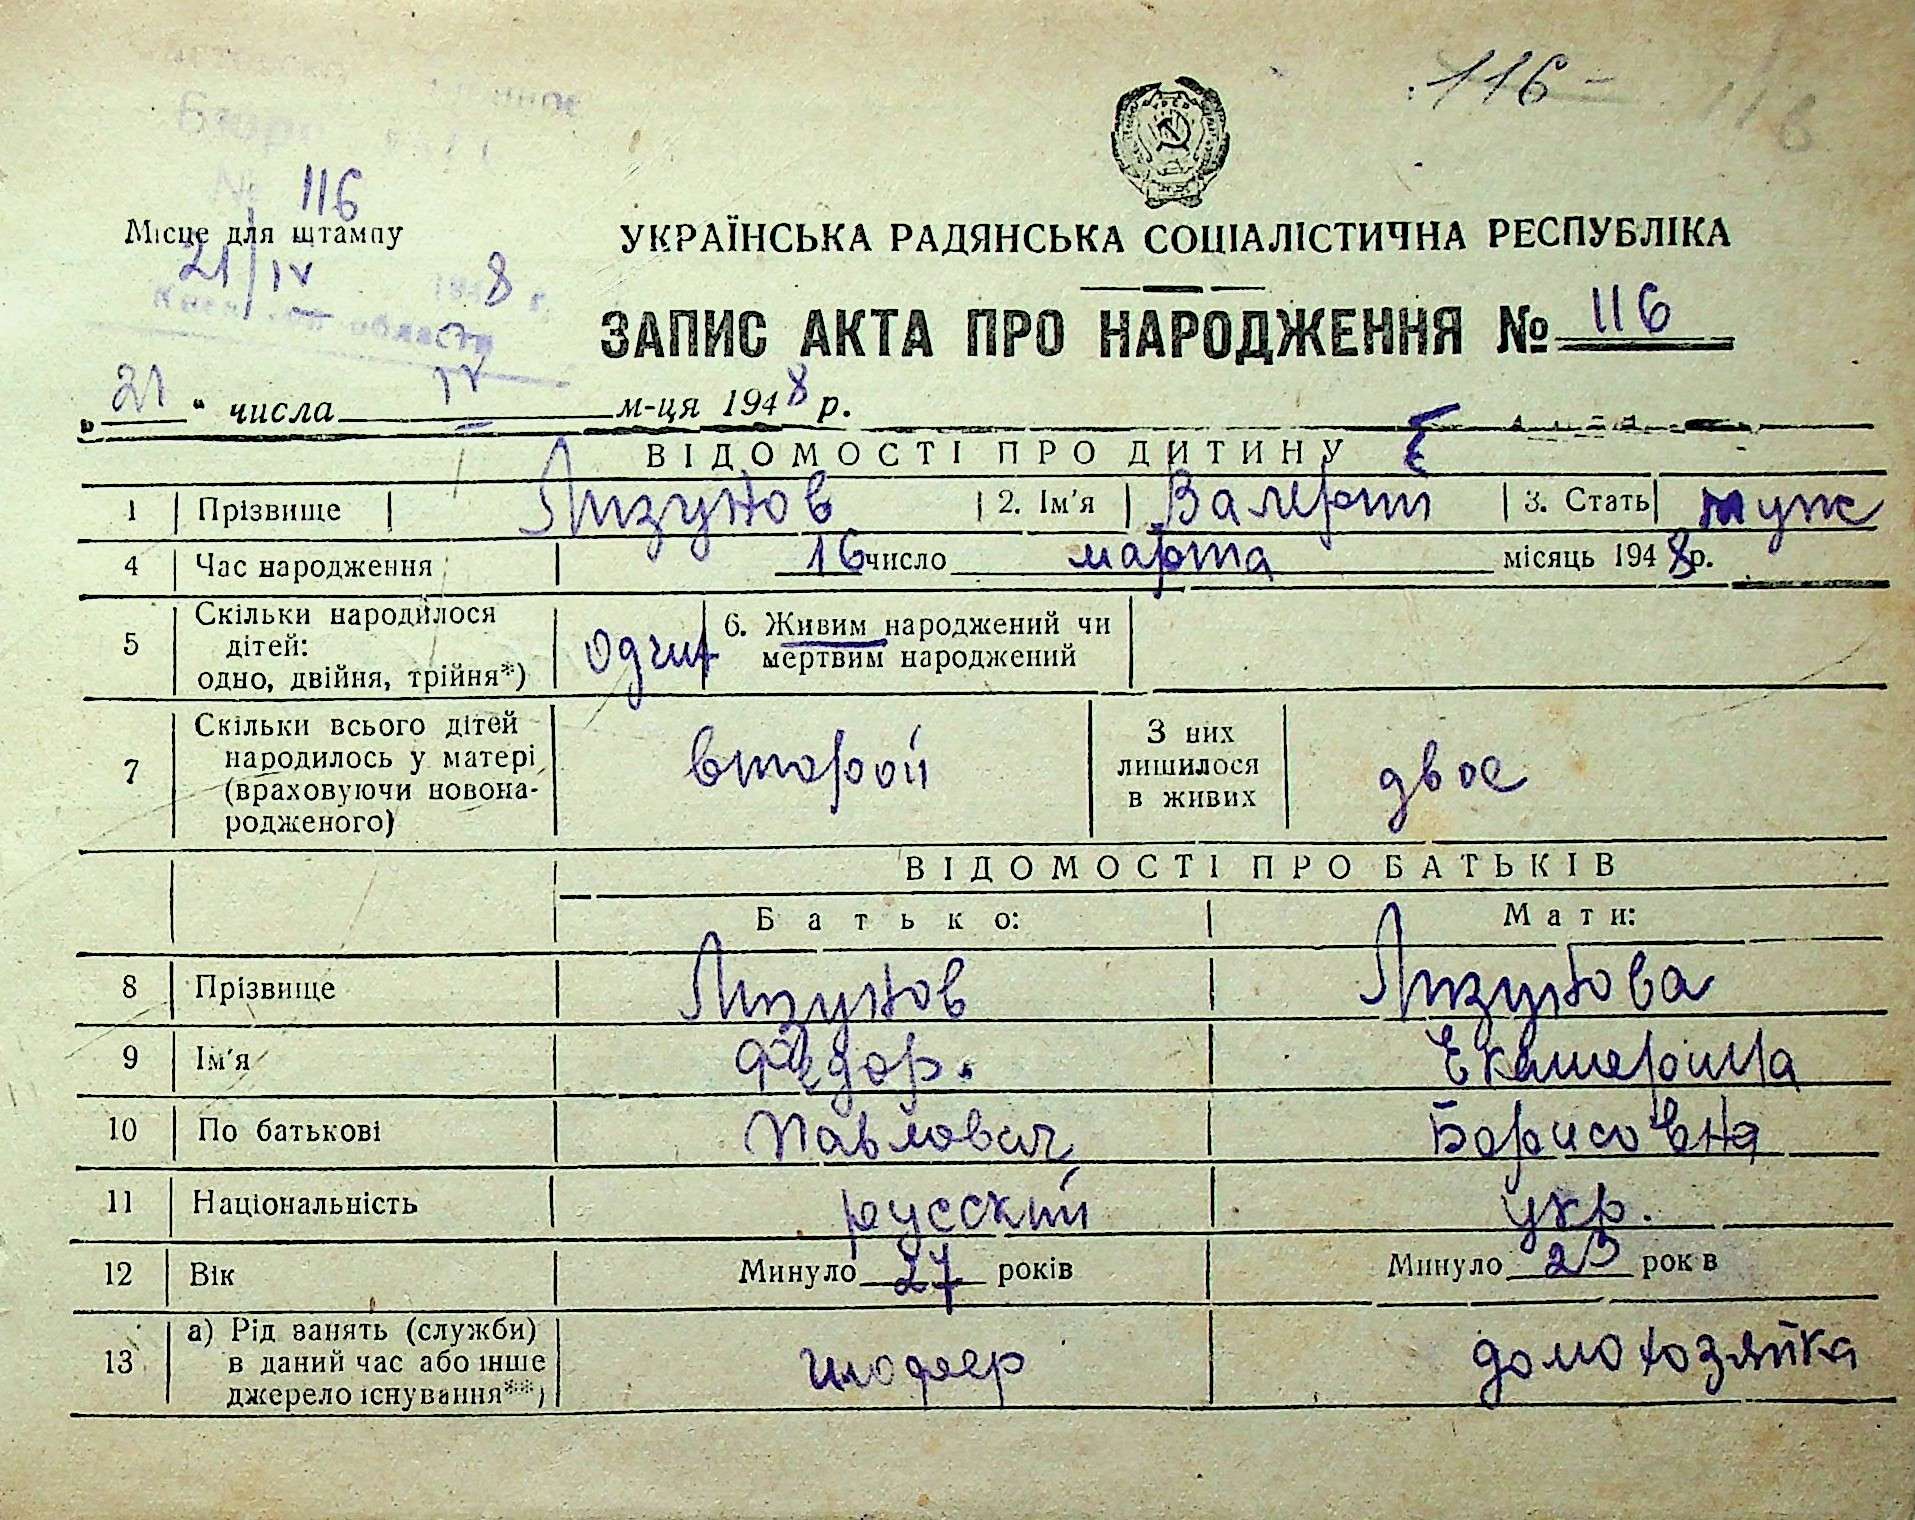 116 116
116
Місце для штампу
21/IV 8
области
УКРАЇНСЬКА РАДЯНСЬКА СОЦІАЛІСТИЧНА РЕСПУБЛІКА
ЗАПИС АКТА ПРО НАРОДЖЕННЯ № 116
„21" числа IV м-ця 1948 р.
ВІДОМОСТІ ПРО ДИТИНУ
1 Прізвище Лизунов 2. Ім'я Валерий 3. Стать муж
4 Час народження 16 число марта місяць 1948 р.
5 Скільки народилося дітей: одно, двійня, трійня*) один 6. Живим народжений чи мертвим народжений
7 Скільки всього дітей народилось у матері (враховуючи новонародженого) второй З них лишилося в живих двое
ВІДОМОСТІ ПРО БАТЬКІВ
Батько: Мати:
8 Прізвище Лизунов Лизунова
9 Ім'я Федор. Екатерина
10 По батькові Павлович Борисовна
11 Національність русский укр.
12 Вік Минуло 27 років Минуло 23 років
13 а) Рід занять (служби) в даний час або інше джерело існування**) шофер домохозяйка